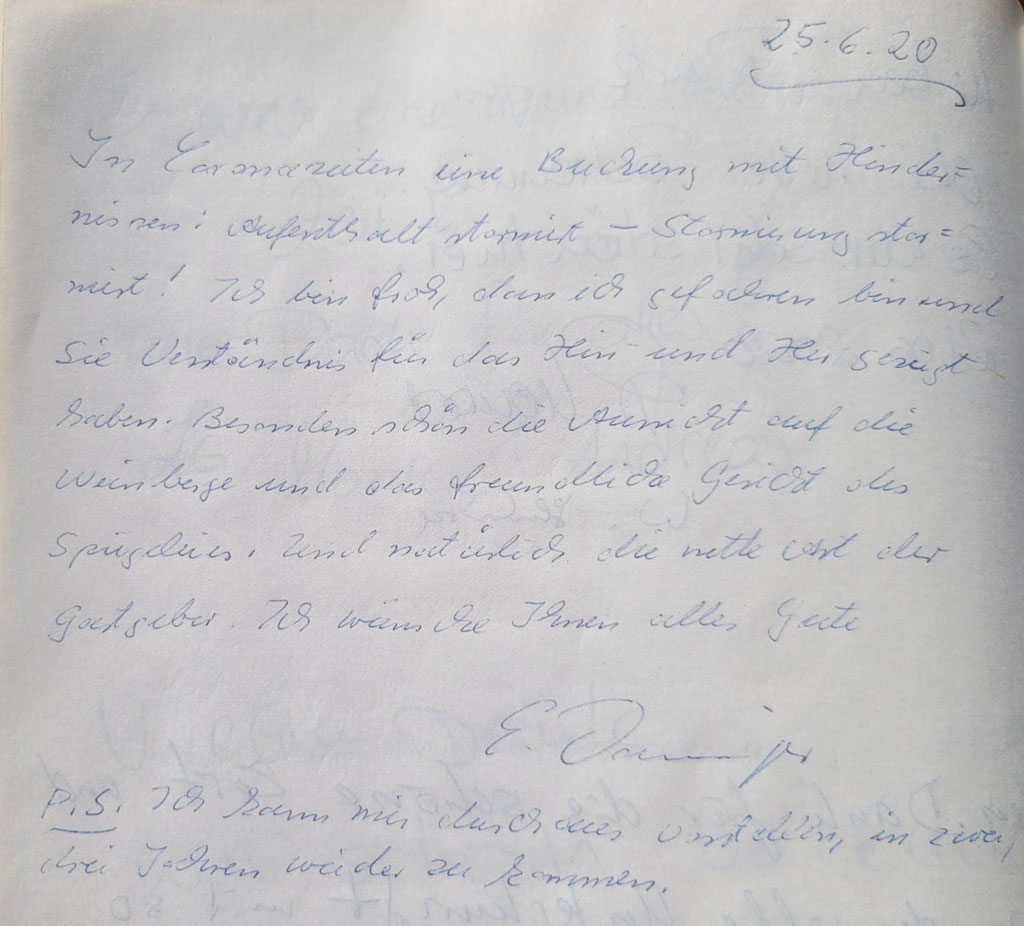 25.6.20
In Coronazeiten eine Buchung mit Hinder=
nissen: Aufenthalt storniert – Stornierung stor=
niert! Ich bin froh, dass ich gefahren bin und
Sie Verständnis für das Hin und Her gezeigt
haben. Besonders schön die Aussicht auf die
Weinberge und das freundliche Gesicht des
und natürlich die nette Art der
Gastgeber. Ich wünsche Ihnen alles Gute
E.
P.S. Ich kann mir durchaus vorstellen, in zwei,
drei Jahren wieder zu kommen.